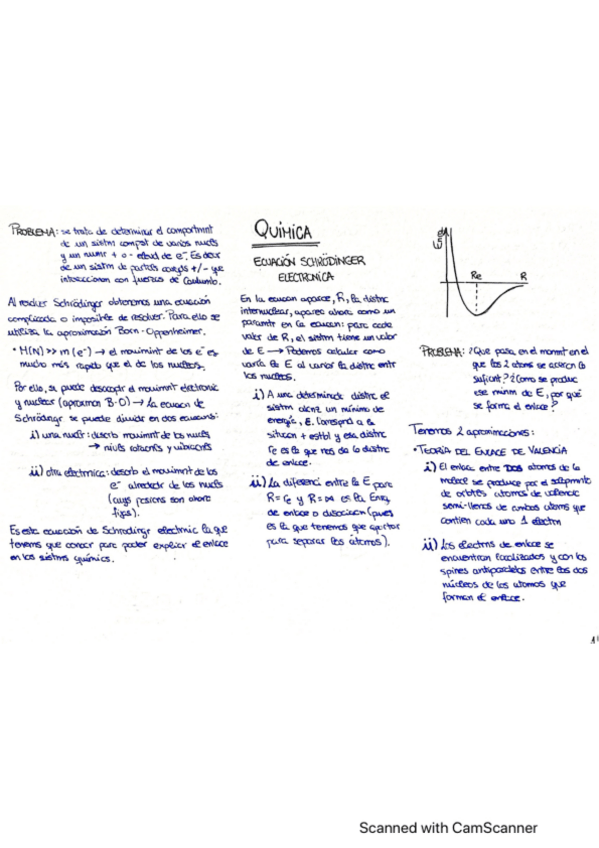 PROBLEMA: se trata de determinar el comportmnt
de un sistm compst de varios nucls
y un numr + o - elvad de e⁻. Es decir
de un sistm de partcls cargds +/- que
interaccionan con fuerzas de Coulomb.
Al resolver Schrödinger obtenemos una ecuación
complicada o imposible de resolver. Para ello se
utiliza la aproximación Born-Oppenheimer.
• M(N) >> m(e⁻) → el movimint de los e⁻ es
mucho más rapido que el de los nucleos.
Por ello, se puede desacoplr el movimnt electronic
y nuclear (aproximcn B-O) → La ecuacn de
Schrödingr se puede dividir en dos ecuacions:
i) una nuclr: describ movimnt de los nucls
→ nivls rotacnls y vibracnls
ii) otra electrnica: describ el movimnt de los
e⁻ alrededr de los nucls
(cuys posicns son ahora
fijas).
Es esta ecuación de Schrödingr electrnic la que
tenems que conocr para poder explicar el enlace
en los sistms químics.
QUIMICA
ECUACIÓN SCHRÖDINGER
ELECTRONICA
En la ecuacn aparce, R, la distnc
internuclear, aparce ahora como un
parametr en la ecuacn: para cada
valor de R, el sistm tiene un valor
de E → Podemos calculr como
varía la E al variar la distnc entr
los nucleos.
i) A una determinada distnc el
sistm alcnz un mínimo de
energía, E. Correspnd a la
situacn + estbl y esa distnc
re es la que nos da la distnc
de enlace.
ii) La diferenci entre la E para
R = re y R = ∞ es la Enrg
de enlace o disociacn (pues
es la que tenemos que aportar
para separar los átomos).
Enrg
Re
R
PROBLEMA: ¿Que pasa en el momnt en el
que los 2 atoms se acercn lo
suficnt? ¿Como se produc
ese mínm de E, por qué
se forma el enlace?
Tenemos 2 aproximaciones:
• TEORÍA DEL ENLACE DE VALENCIA
i) El enlace entre DOS atomos de la
molecl se produce por el solapmnto
de orbitls atomcs de valencia
semi-llenos de ambos atoms que
contien cada uno 1 electrn
ii) Los electrns de enlace se
encuentran localizados y con los
spines antiparalelos entre los dos
núcleos de los atomos que
forman el enlace.
Scanned with CamScanner